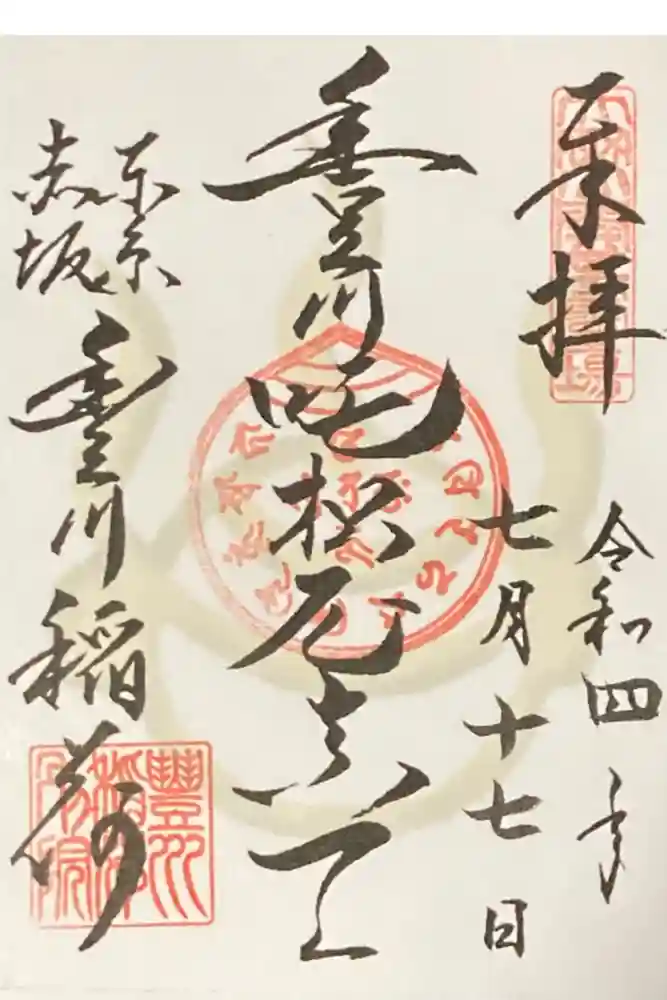 奉拝
令和四年
七月十七日
豊川吒枳尼真天
東京
赤坂
豊川稲荷